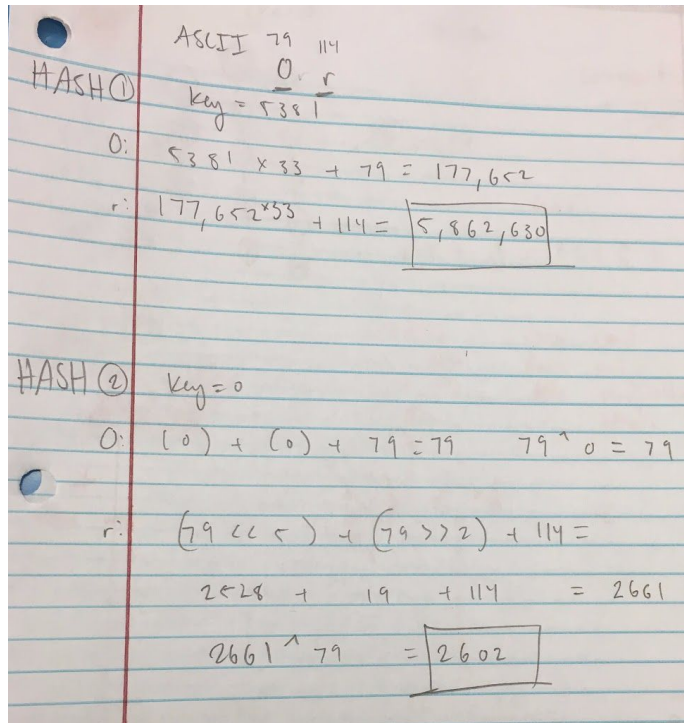 ASCII 79 114
O r
HASH ① Key = 5381
O: 5381 × 33 + 79 = 177,652
r: 177,652*33 + 114 = 5,862,630
HASH ② Key = 0
O: (0) + (0) + 79 = 79 79 ^ 0 = 79
r: (79 << 5) + (79 >> 2) + 114 =
2528 + 19 + 114 = 2661
2661 ^ 79 = 2602